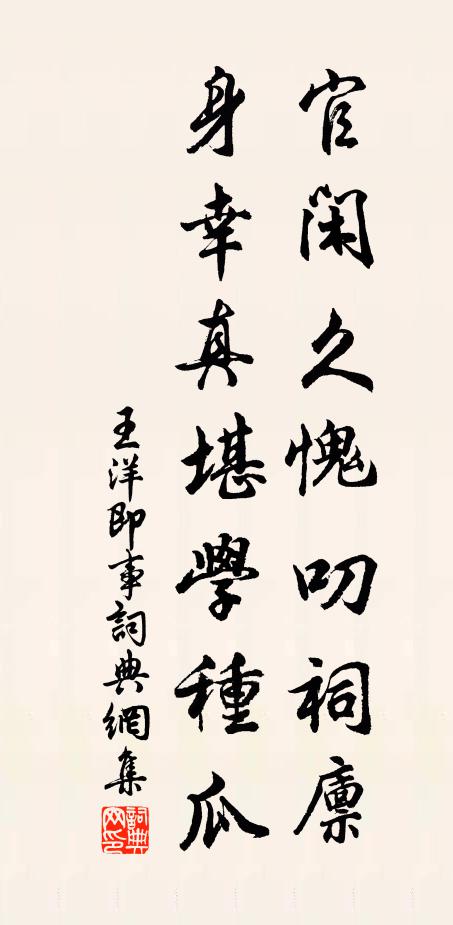 官閑久愧叨祠廪
身幸真堪學種瓜
王洋即事詞典網集
詞典網印